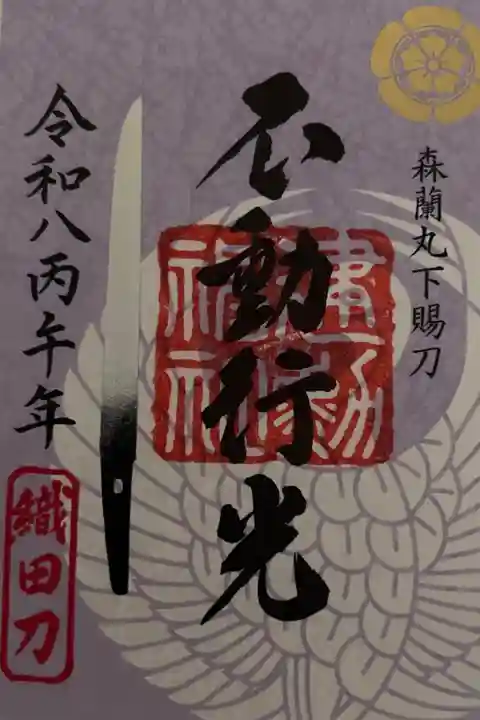 森蘭丸下賜刀
不動行光
建勲
神社
令和八丙午年
織田刀